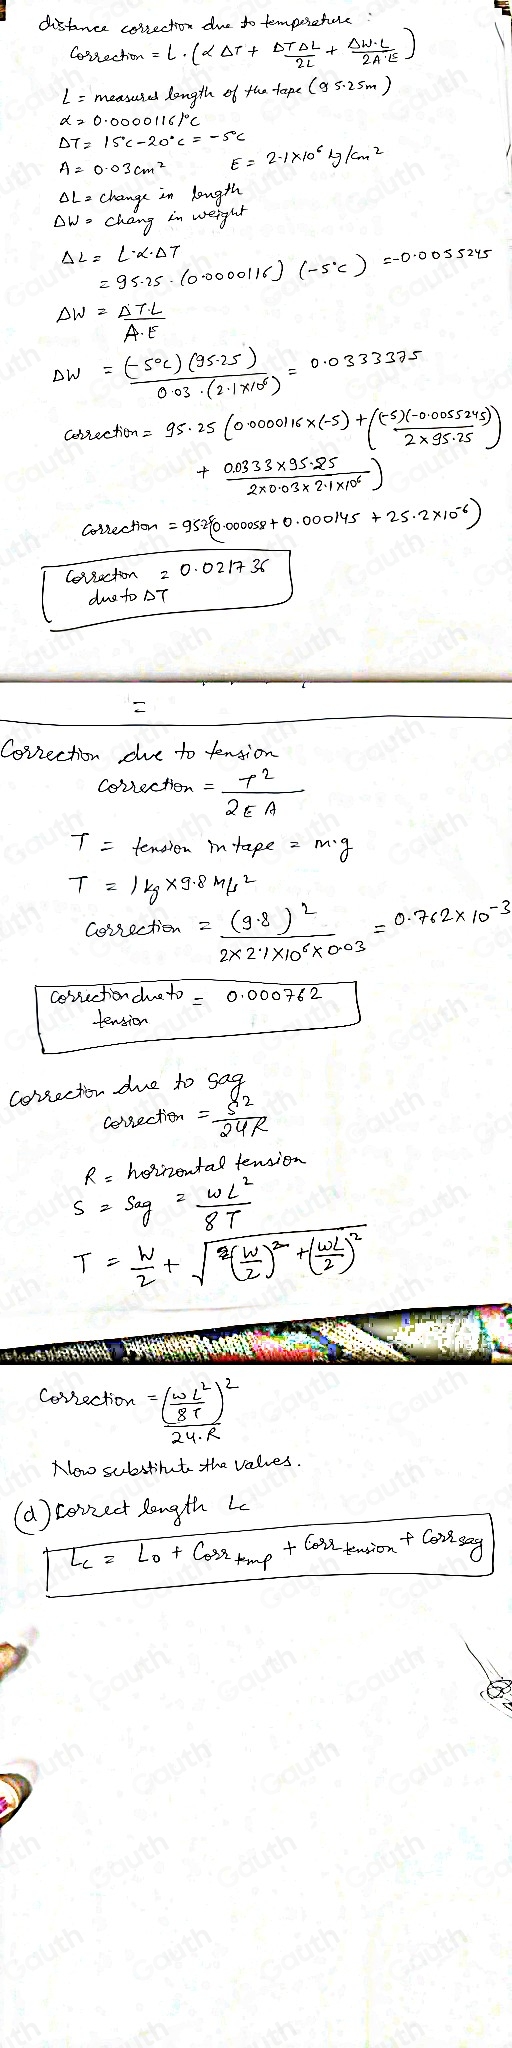 distance correction due to temperature :
Correction = L . (α ΔT + ΔTΔL/2L + ΔW·L/2A·E)
L = measured length of the tape (95.25m)
α = 0.0000116/°C
ΔT = 15°C - 20°C = -5°C
A = 0.03cm² E = 2.1×10⁶ kg/cm²
ΔL = change in length
ΔW = chang in weight
ΔL = L·α·ΔT
= 95.25 · (0.0000116) (-5°C) = -0.0055245
ΔW = ΔT·L/A·E
ΔW = (-5°C) (95.25)/0.03 · (2.1×10⁶) = 0.0333375
Correction = 95.25 (0.0000116×(-5) + ((-5)(-0.0055245)/2×95.25)
+ 0.0333×95.25/2×0.03×2.1×10⁶)
Correction = 95.25(0.000058 + 0.000145 + 25.2×10⁻⁶)
Correction = 0.021736
due to ΔT
=
Correction due to tension
Correction = T²/2EA
T = tension in tape = m·g
T = 1kg × 9.8 M/s²
Correction = (9.8)²/2×2.1×10⁶×0.03 = 0.762×10⁻³
Correction due to = 0.000762
tension
Correction due to sag
Correction = S²/24R
R = horizontal tension
S = Sag = wL²/8T
T = W/2 + √((W/2)² + (WL/2)²)
Correction = (wL²/8T)²/24·R
Now substitute the values.
(d) Correct length Lc
Lc = L0 + Corr temp + Corr tension + Corr sag